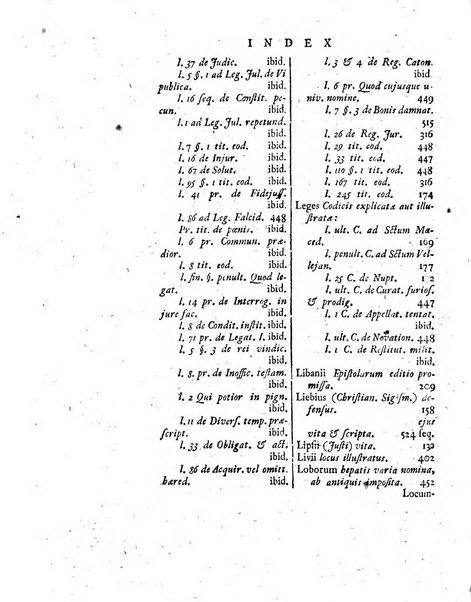 INDEX
l. 37 de Judic. ibid.
l. 5 §. 1 ad Leg. Jul. de Vi
publica. ibid.
l. 16 seq. de Constit. pe-
cun. ibid.
l. 1 ad Leg. Jul. repetund.
ibid.
l. 7 §. 1 tit. eod. ibid.
l. 16 de Injur. ibid.
l. 62 de Solut. ibid.
l. 95 §. 1 tit. eod. ibid.
l. 41 pr. de Fidejuss.
ibid.
l. 86 ad Leg. Falcid. 448
Pr. tit. de pœnis. ibid.
l. 6 pr. Commun. præ-
dior. ibid.
l. 18 tit. eod. ibid.
l. fin. §. penult. Quod le-
gat. ibid.
l. 14 pr. de Interrog. in
jure fac. ibid.
l. 8 de Condit. instit. ibid.
l. 71 pr. de Legat. I. ibid.
l. 5 §. 3 de rei vindic.
ibid.
l. 8. pr. de Inoffic. testam.
ibid.
l. 2 Qui potior in pign.
ibid.
l. 11 de Divers. temp. præ-
script. ibid.
l. 33 de Obligat. & act.
ibid.
l. 86 de Acquir. vel omitt.
hæred. ibid.
l. 3 & 4 de Reg. Caton.
ibid.
l. 6 pr. Quod cujusque u-
niv. nomine. 449
l. 7 §. 3 de Bonis damnat.
515
l. 26 de Reg. Jur. 316
l. 29 tit. eod. 448
l. 33 tit. eod. 447
l. 110 §. 1 tit. eod. 316
l. 167 tit. eod. 316
l. 245 tit. eod. 174
Leges Codicis explicatæ aut illu-
stratæ:
l. ult. C. ad SCtum Ma-
ced. 169
l. penult. C. ad SCtum Vel-
lejan. 177
l. 25 C. de Nupt.
l. ult. C. de Curat. furios.
& prodig. 447
l. 1 C. de Appellat. tentat.
ibid.
l. ult. C. de Novation. 448
l. 1 C. de Restitut. milit.
ibid.
Libanii Epistolarum editio pro-
missa. 209
Liebius (Christian. Sigism.) de-
fensus. 158
ejus
vita & scripta. 524 seq.
Lipsii (Justi) vita. 132
Livii locus illustratus. 402
Loborum hepatis varia nomina,
ab antiquis imposita. 452
Locum-